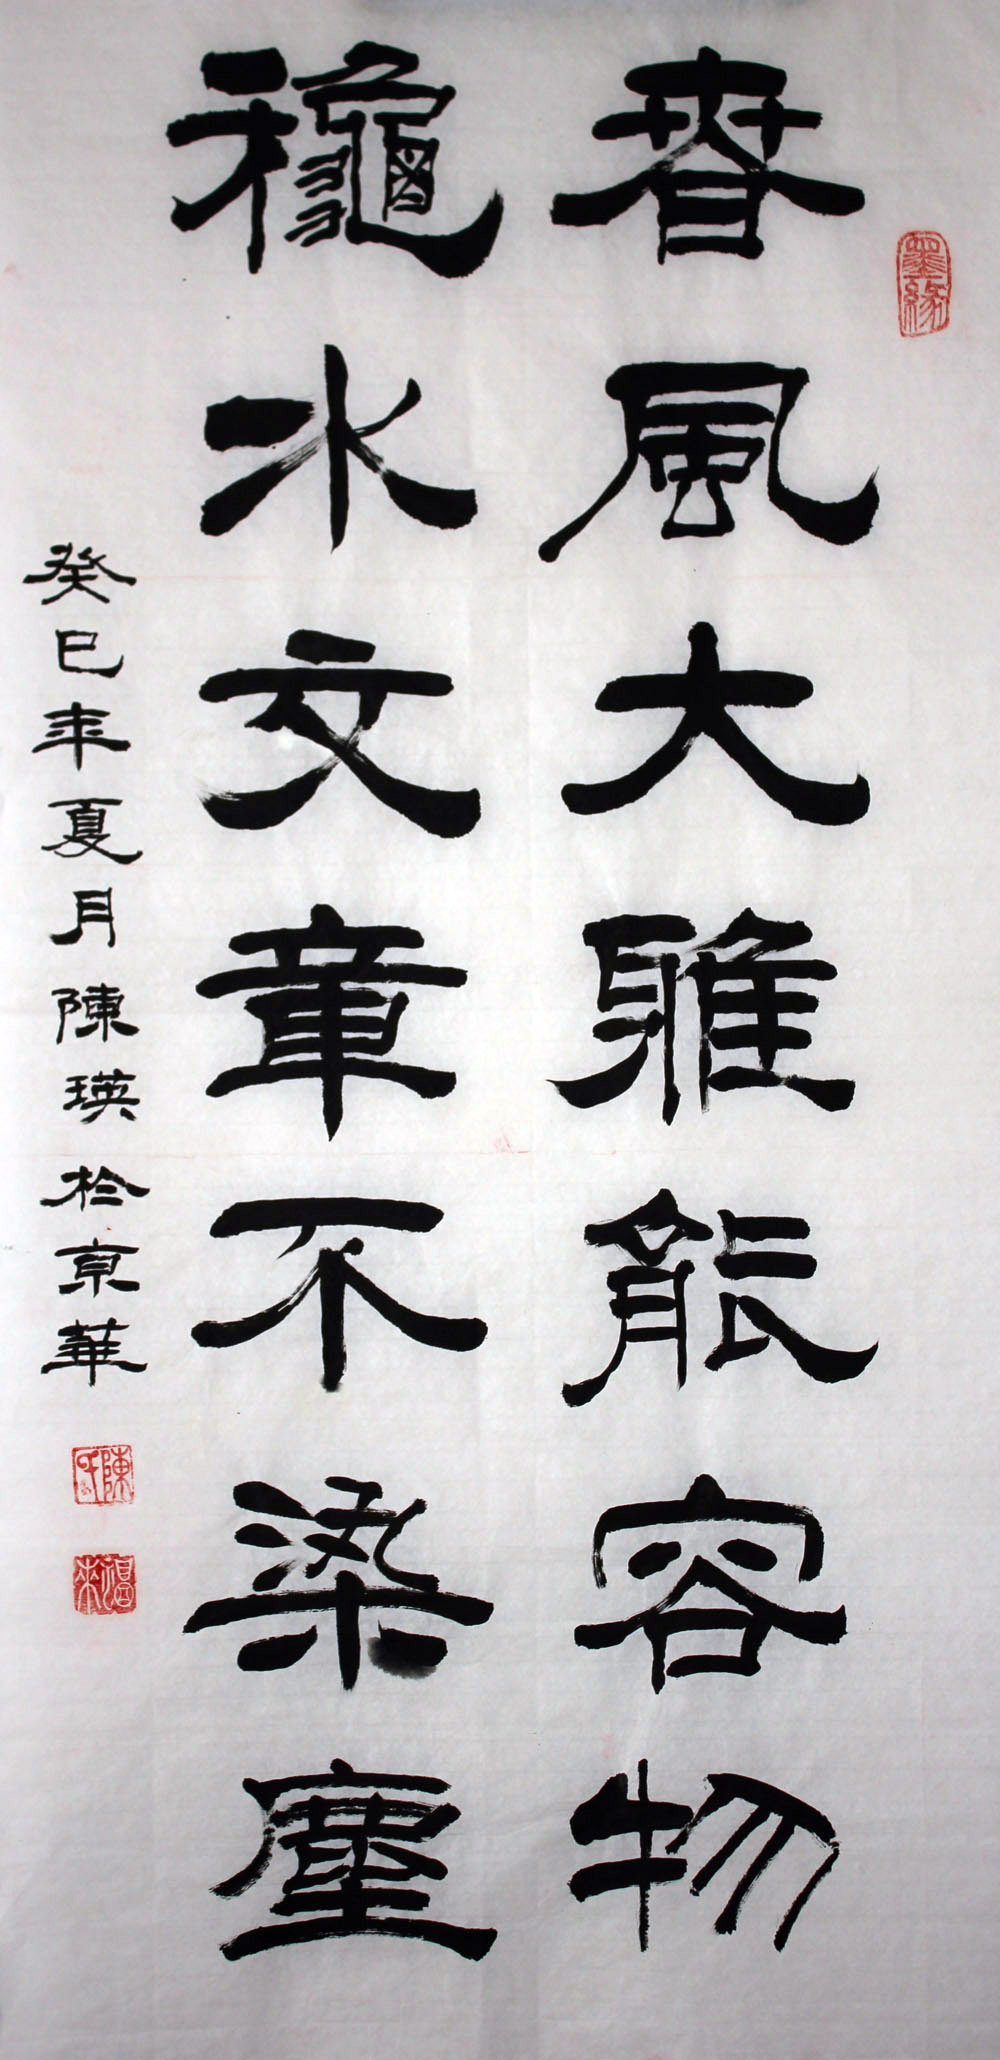 墨緣
春風大雅能容物
龝水文章不染塵
癸巳年夏月陳瑛於京華
陳氏